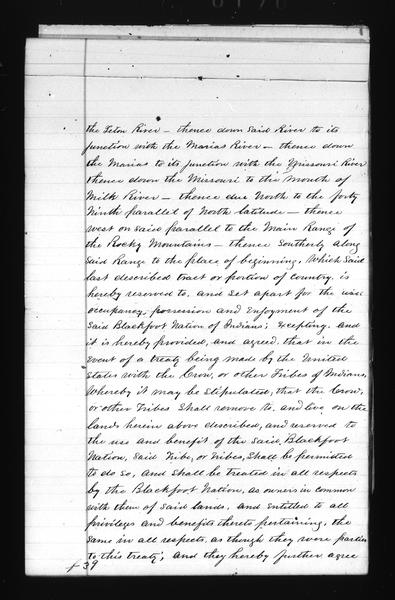 the Teton River — thence down said River to its
junction with the Marias River — thence down
the Marias to its junction with the Missouri River
thence down the Missouri to the Mouth of
Milk River — thence due North to the forty
Ninth parallel of North latitude — thence
west on said parallel to the Main Range of
the Rocky Mountains — thence Southerly along
said Range to the place of beginning. Which said
last described tract or portion of country, is
hereby reserved to, and set apart for the use,
occupancy, possession and enjoyment of the
said Blackfoot Nation of Indians; excepting. and
it is hereby provided, and agreed, that in the
event of a treaty being made by the United
States with the Crow, or other Tribes of Indians,
Whereby it may be stipulated, that the Crow,
or other Tribes shall remove to, and live on the
lands herein above described, and reserved to
the use and benefit of the said, Blackfoot
Nation, said Tribe, or Tribes, shall be permitted
to do so, and shall be treated in all respects
by the Blackfoot Nation, as owners in common
with them of said lands, and entitled to all
privileges and benefits thereto pertaining, the
same in all respects, as though they were parties
to this treaty; and they hereby further agree
39